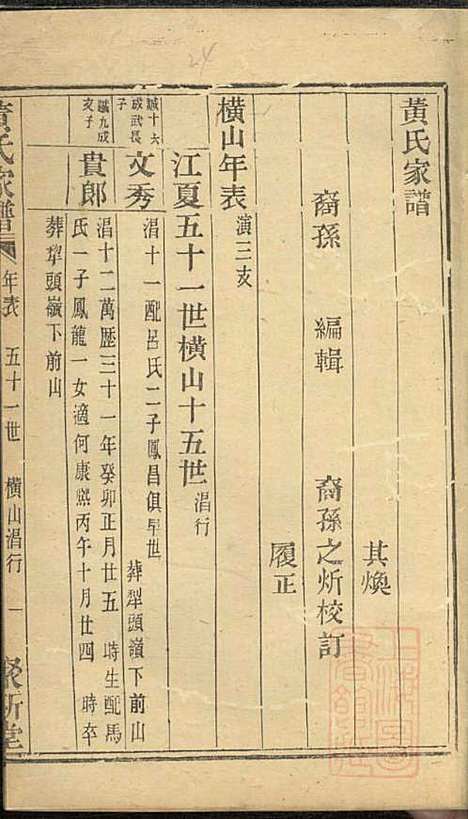 黃氏家譜
其煥
裔孫 編輯 裔孫之炘校訂
履正
橫山年表 演三支
江夏五十一世橫山十五世 淐行
誠十六
成武長
子
文秀 淐十一配呂氏二子鳳昌俱早世 葬犁頭嶺下前山
誠九成
亥子
貴郎 淐十二萬歷三十一年癸卯正月廿五 時生配馬
氏一子鳳龍一女適何康熙丙午十月廿四 時卒
葬犁頭嶺下前山
黃氏家譜 年表 五十一世 橫山淐行 一
24